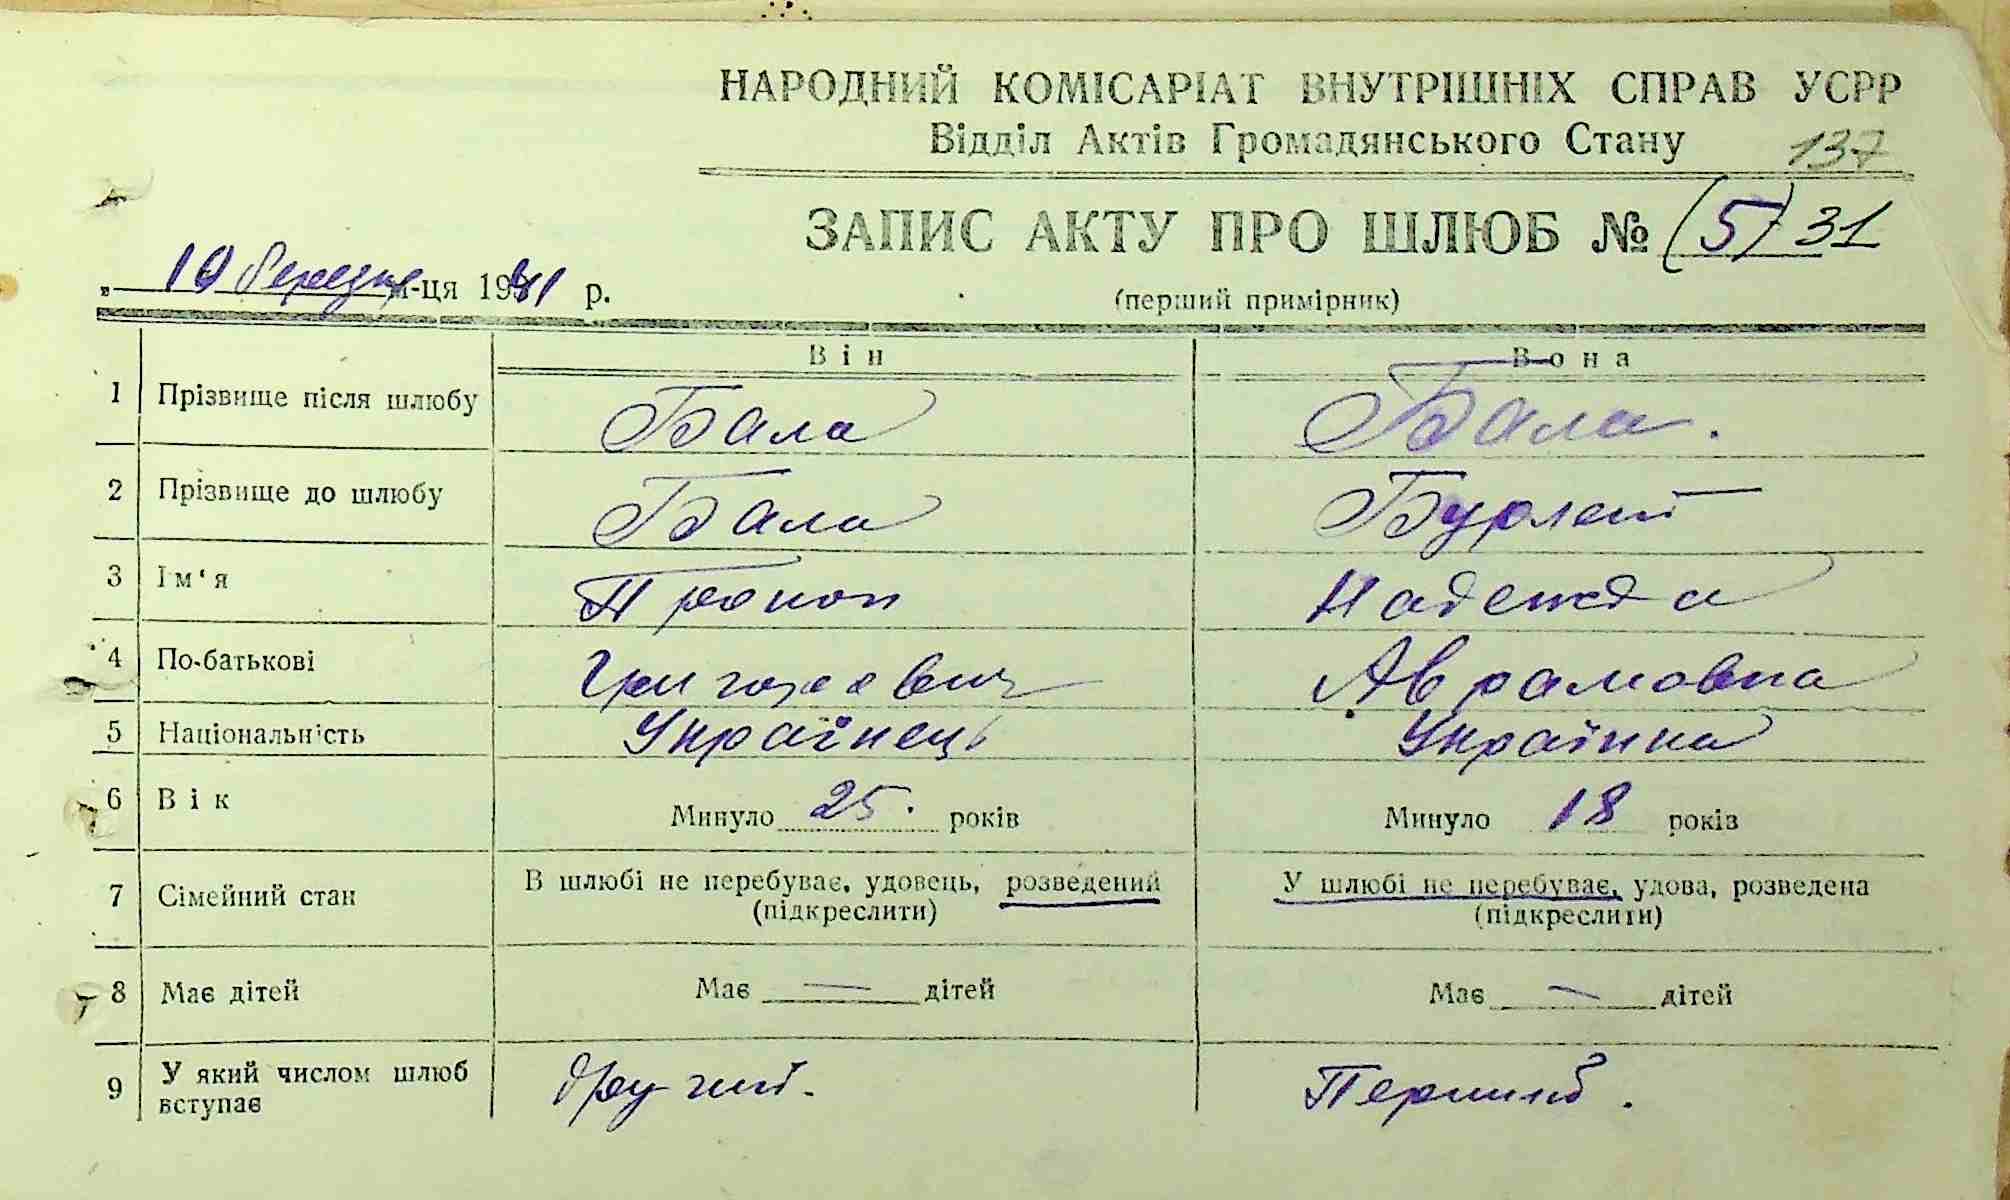 НАРОДНИЙ КОМІСАРІАТ ВНУТРІШНІХ СПРАВ УСРР
Відділ Актів Громадянського Стану 137
ЗАПИС АКТУ ПРО ШЛЮБ № (5) 31
„ 10 березня м-ця 1941 р. (перший примірник)
Він Вона
1 Прізвище після шлюбу Бала Бала.
2 Прізвище до шлюбу Бала
3 Ім‘я Прокоп Надежда
4 По-батькові Григорович Аврамовна
5 Національність Українець Українка
6 Вік Минуло 25. років Минуло 18 років
7 Сімейний стан В шлюбі не перебуває, удовець, розведений У шлюбі не перебуває, удова, розведена
(підкреслити) (підкреслити)
8 Має дітей Має — дітей Має — дітей
9 У який числом шлюб вступає Другий. Перший.